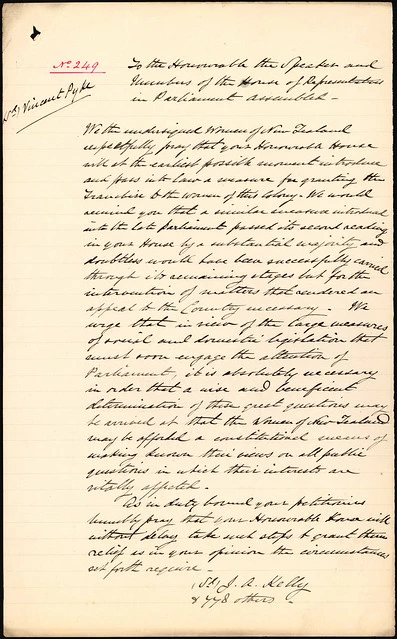 No 249
(Sd) Vincent Pyke
To the Honourable the Speaker and
Members of the House of Representatives
in Parliament assembled -
We the undersigned Women of New Zealand
respectfully pray that your Honorable House
will at the earliest possible moment introduce
and pass into law a measure for granting the
Franchise to the women of this Colony. We would
remind you that a similar measure introduced
into the late Parliament passed its second reading
in your House by a substantial majority and
doubtless would have been successfully carried
through its remaining stages but for the
intervention of matters that rendered an
appeal to the Country necessary - We
urge that in view of the large measures
of social and domestic legislation that
must soon engage the attention of
Parliament, it is absolutely necessary
in order that a wise and beneficent
determination of these great questions may
be arrived at that the Women of New Zealand
may be afforded a constitutional means of
making known their views on all public
questions in which their interests are
vitally affected -
As in duty bound your petitioners
humbly pray that your Honourable House will
without delay take such steps to grant them
relief as in your opinion the circumstances
set forth require -
(Sd) J. A. Kelly
& 778 others -